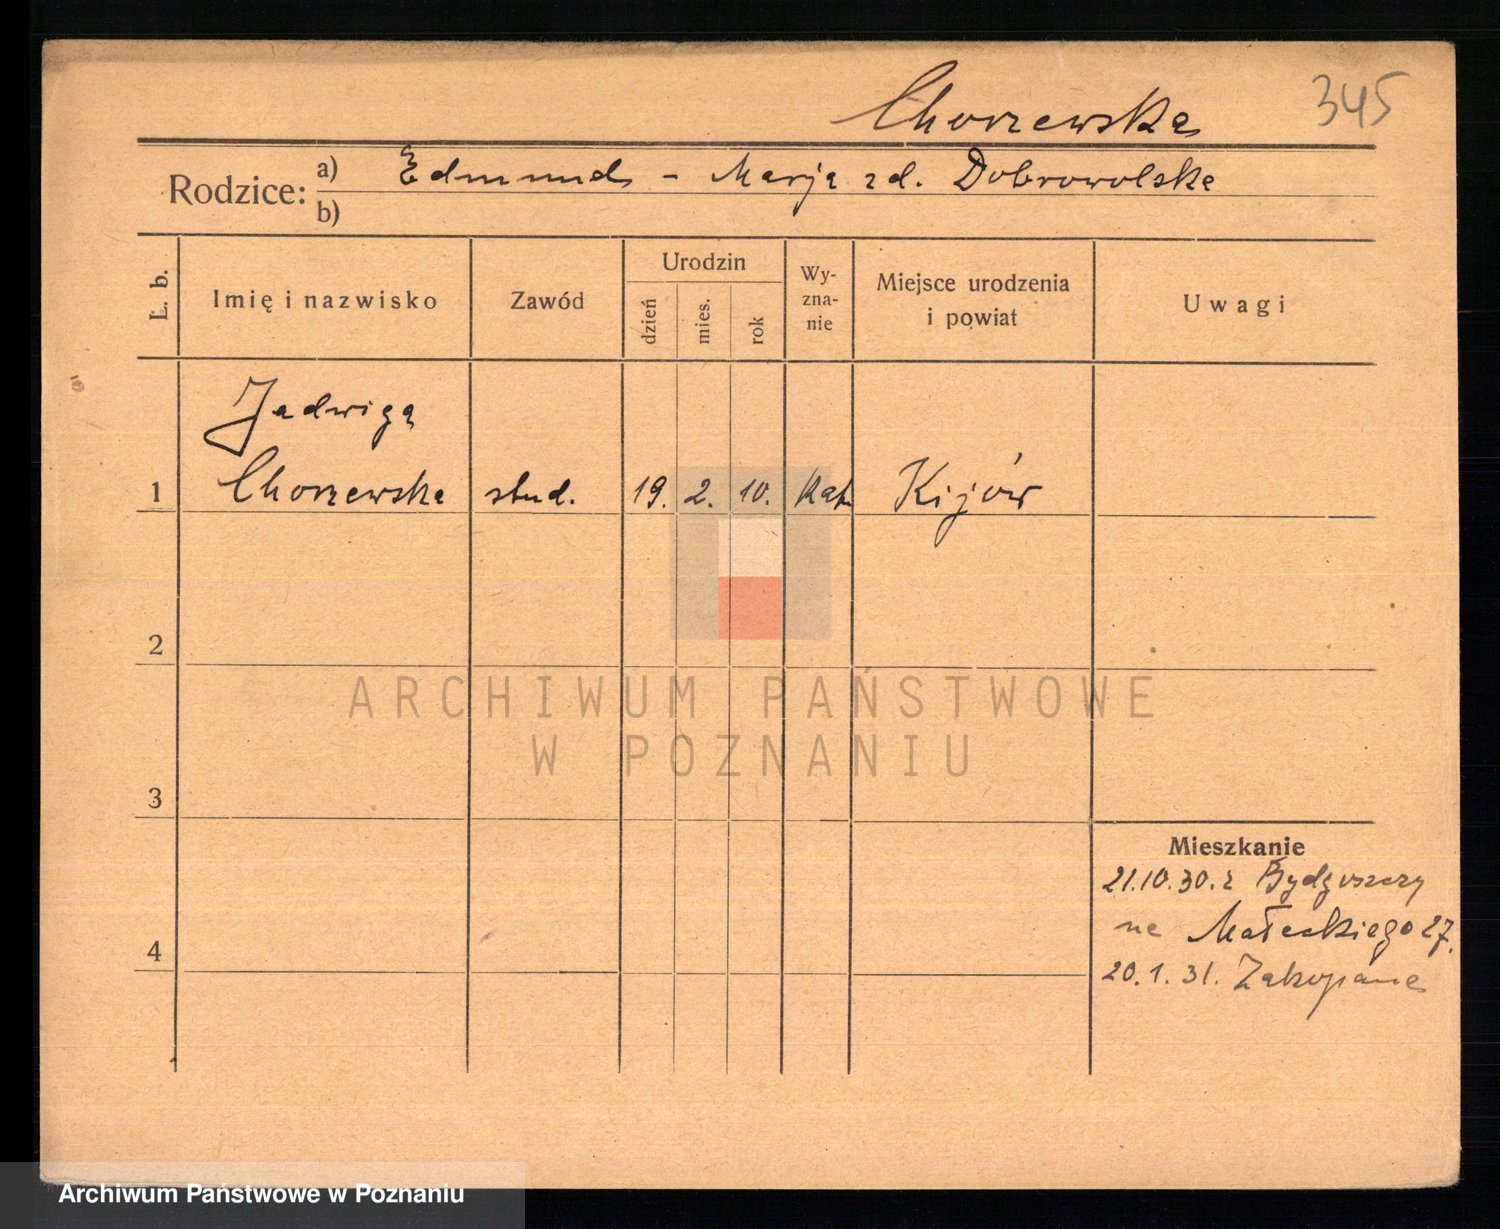 Chorzewska
345
Rodzice: a) Edmund - Marja z d. Dobrowolska
b)
L. b.
Imię i nazwisko
Zawód
Urodzin
dzień
mies.
rok
Wy-
zna-
nie
Miejsce urodzenia
i powiat
Uwagi
Jadwiga
1 Chorzewska stud. 19. 2. 10. kat. Kijów
2
ARCHIWUM PAŃSTWOWE
W POZNANIU
3
Mieszkanie
21.10.30. z Bydgoszczy
na Małeckiego 27.
4
20.1.31. Zakopane
Archiwum Państwowe w Poznaniu